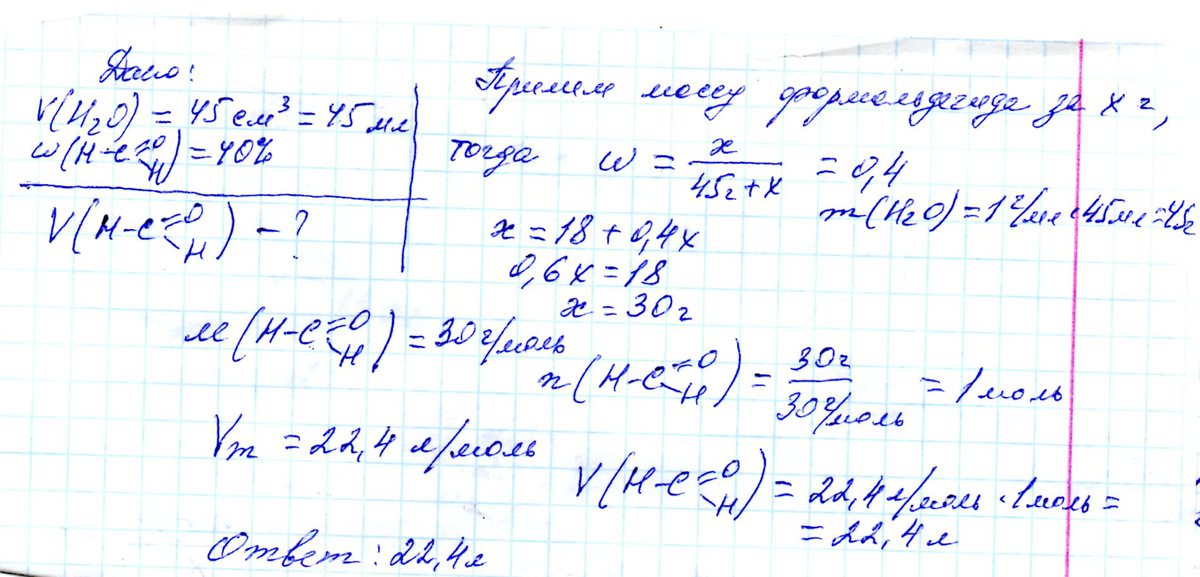 Дано:
V(H₂O) = 45 см³ = 45 мл
w(H-C=O H) = 40%
V(H-C=O H) - ?
Примем массу формальдегида за x г,
тогда w = x / 45г + x = 0,4
m(H₂O) = 1 г/мл · 45мл = 45г
x = 18 + 0,4x
0,6x = 18
x = 30г
M(H-C=O H) = 30 г/моль
n(H-C=O H) = 30г / 30г/моль = 1 моль
Vm = 22,4 л/моль
V(H-C=O H) = 22,4 л/моль · 1 моль =
= 22,4 л
Ответ: 22,4л